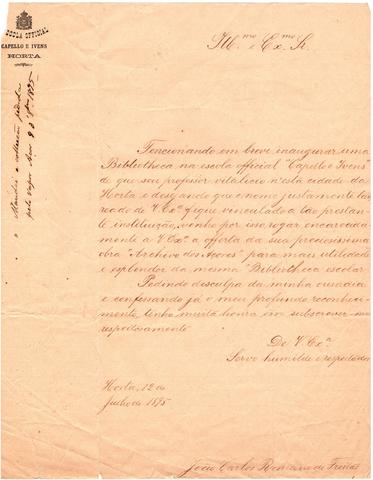 ESCOLA OFFICIAL
CAPELLO E IVENS
HORTA
Mandei a collecção pedida
pelo vapor
Ill.mo e Ex.mo Sr.
Tencionando em breve inaugurar uma
Bibliotheca na escola official "Capello e Ivens"
de que sou professor vitalicio n'esta cidade da
Horta e desejando que o nome justamente lau-
reado de V. Ex.a fique vinculado a tão prestan-
te instituição, venho por isso rogar encarecida-
mente a V. Ex.a a offerta da sua preciosissima
obra "Archivo dos Açores" para mais utilidade
e esplendor da mesma "Bibliotheca escolar
Pedindo desculpa da minha ousadia
e confessando já o meu profundo reconheci-
mento, tenho muita honra em subscrever-me
respeitosamente
De V. Ex.a
Servo humilde e respeitador
Horta, 12 de
Junho de 1895
João Carlos de Freitas